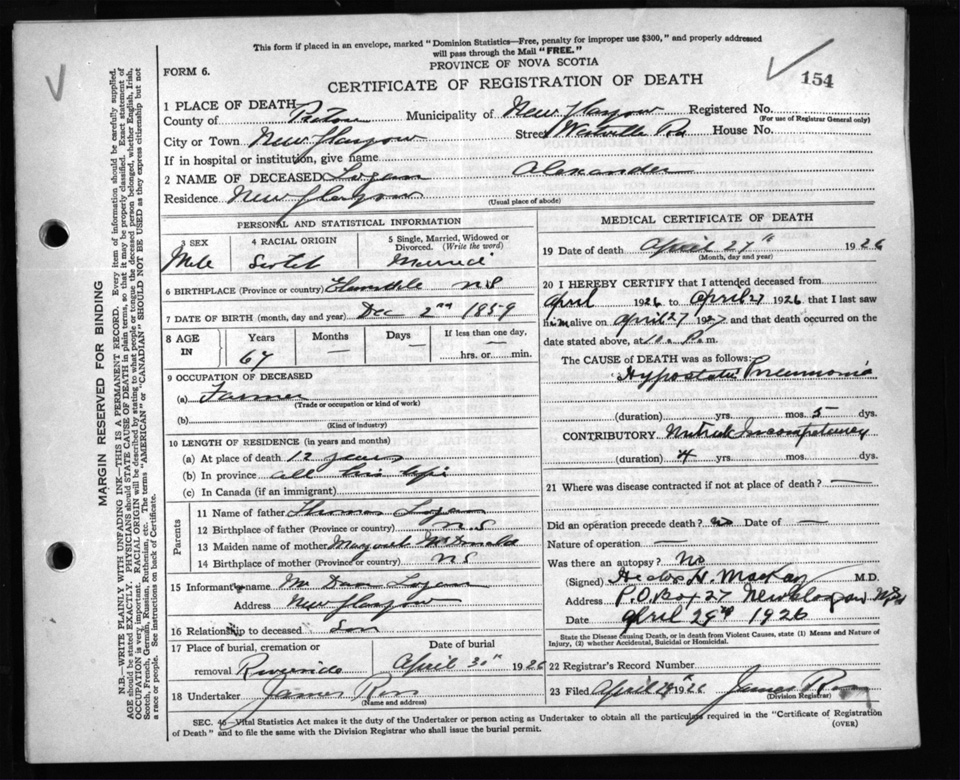 This form if placed in an envelope, marked "Dominion Statistics—Free, penalty for improper use $300," and properly addressed
will pass through the Mail "FREE."
PROVINCE OF NOVA SCOTIA
FORM 6.
CERTIFICATE OF REGISTRATION OF DEATH
154
1 PLACE OF DEATH
County of Pictou Municipality of New Glasgow Registered No.
(For use of Registrar General only)
City or Town New Glasgow Street Westville Rd House No.
If in hospital or institution, give name
2 NAME OF DECEASED Logan Alexander
Residence New Glasgow
(Usual place of abode)
PERSONAL AND STATISTICAL INFORMATION
3 SEX 4 RACIAL ORIGIN 5 Single, Married, Widowed or
Divorced. (Write the word)
Male Scotch Married
6 BIRTHPLACE (Province or country) N S
7 DATE OF BIRTH (month, day and year) Dec 2nd 1859
8 AGE IN Years Months Days If less than one day,
67 — — — hrs. or min.
9 OCCUPATION OF DECEASED
(a) Farmer
(Trade or occupation or kind of work)
(b)
(Kind of industry)
10 LENGTH OF RESIDENCE (in years and months)
(a) At place of death 12 years
(b) In province all his life
(c) In Canada (if an immigrant)
Parents
11 Name of father Thomas Logan
12 Birthplace of father (Province or country) N S
13 Maiden name of mother Margaret McDonald
14 Birthplace of mother (Province or country) N S
15 Informant's name Mr Dan Logan
Address New Glasgow
16 Relationship to deceased Son
17 Place of burial, cremation or Date of burial
removal Riverside April 30th 1926
18 Undertaker James Ross
(Name and address)
MEDICAL CERTIFICATE OF DEATH
19 Date of death April 27th 1926
(Month, day and year)
20 I HEREBY CERTIFY that I attended deceased from
April 1926 to April 27 1926 that I last saw
him alive on April 27 1927 and that death occurred on the
date stated above, at 10 P. m.
The CAUSE of DEATH was as follows:
Hypostatic Pneumonia
(duration) yrs. mos. 5 dys.
CONTRIBUTORY. Mitral Incompetency
(duration) 4 yrs. mos. dys.
21 Where was disease contracted if not at place of death? —
Did an operation precede death? no Date of —
Nature of operation —
Was there an autopsy? No
(Signed) Hector H. MacKay M.D.
Address P.O. Box 27 New Glasgow N.S.
Date April 29th 1926
State the Disease Causing Death, or in death from Violent Causes, state (1) Means and Nature of
Injury, (2) whether Accidental, Suicidal or Homicidal.
22 Registrar's Record Number
23 Filed April 29 1926 James Ross
(Division Registrar)
SEC. 46—Vital Statistics Act makes it the duty of the Undertaker or person acting as Undertaker to obtain all the particulars required in the "Certificate of Registration
of Death" and to file the same with the Division Registrar who shall issue the burial permit.
(OVER)
MARGIN RESERVED FOR BINDING
N.B.—WRITE PLAINLY WITH UNFADING INK—THIS IS A PERMANENT RECORD. Every item of information should be carefully supplied.
AGE should be stated EXACTLY. PHYSICIANS should STATE CAUSE OF DEATH in plain terms, so that it may be properly classified. Exact statement of
OCCUPATION is very important. RACIAL ORIGIN will be described by stating to what people or tongue the deceased person belonged, whether English, Irish,
Scotch, French, German, Russian, Ruthenian, etc. The terms "AMERICAN" or "CANADIAN" SHOULD NOT BE USED as they express citizenship but not
a race or people. See instructions on back of Certificate.